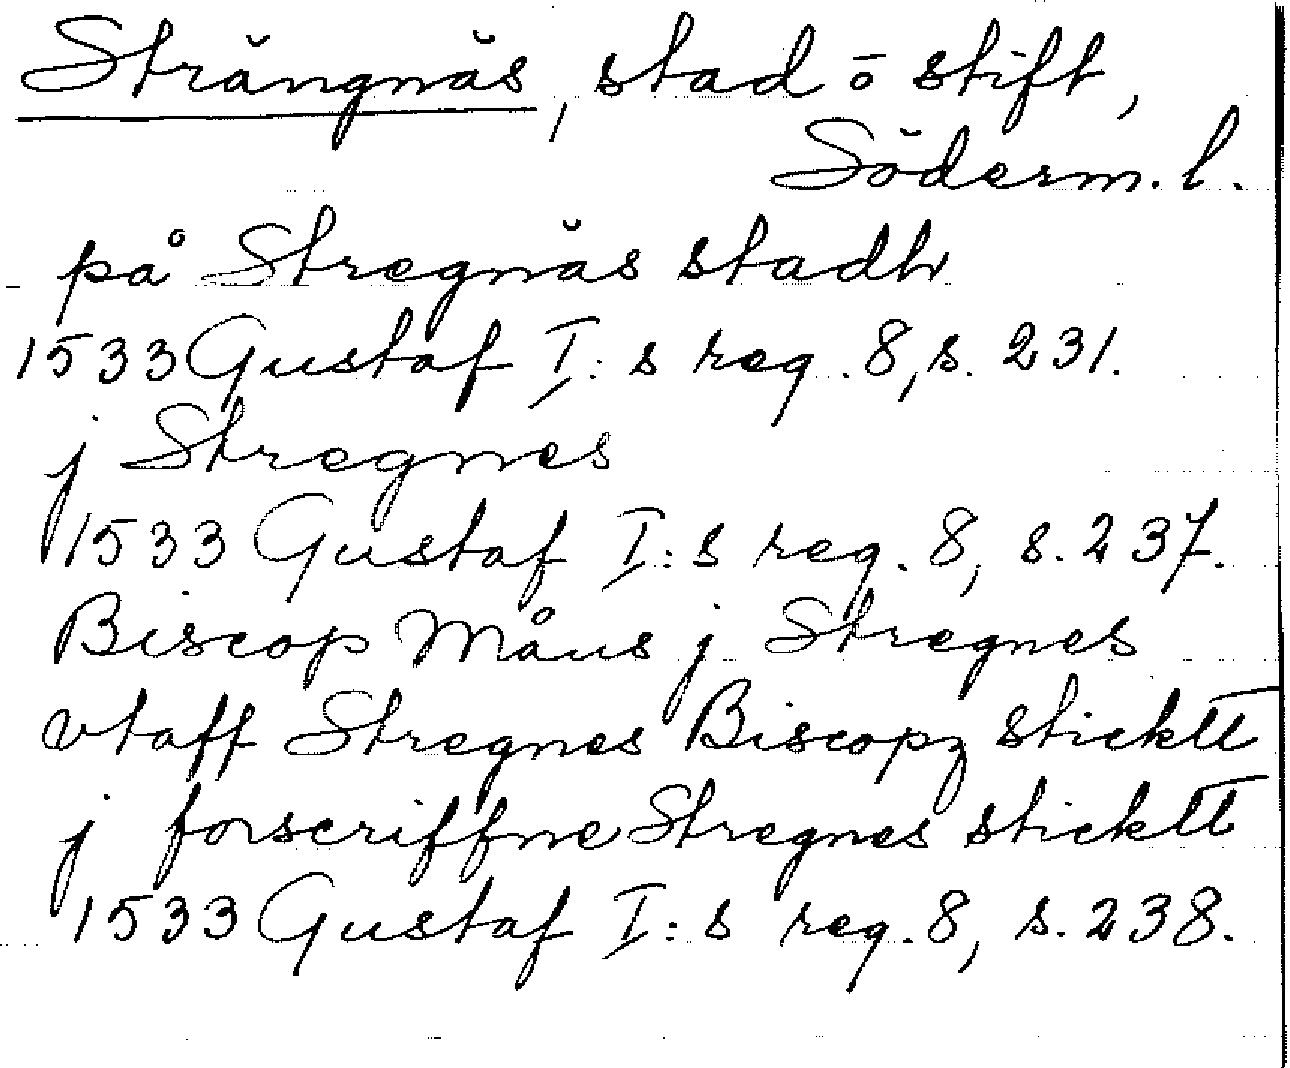 Strängnäs, stad o stift,
Söderm. l.
på Stregnäs stadh
1533 Gustaf I:s reg. 8, s. 231.
j Stregnes
1533 Gustaf I:s reg. 8, s. 237.
Biscop Måns j Stregnes
vtaff Stregnes Biscopz sticktt
j forscriffne Stregnes sticktt
1533 Gustaf I:s reg. 8, s. 238.